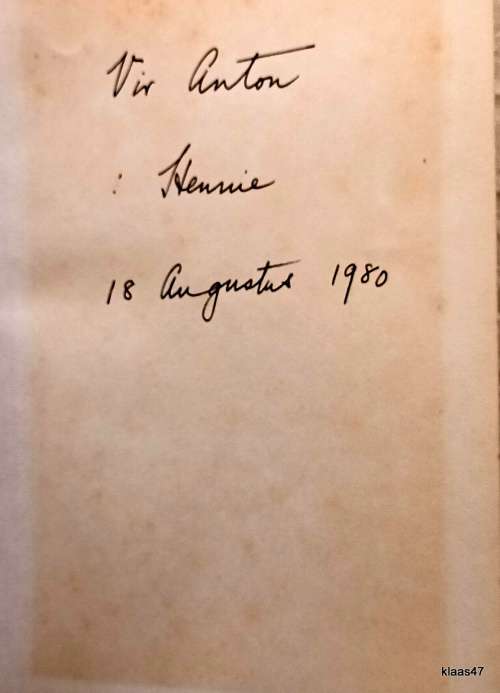 Vir Anton
: Hennie
18 Augustus 1980
klaas47